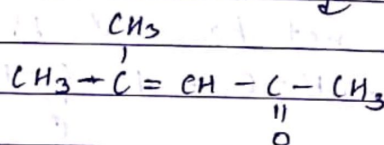 CH3
CH3 - C = CH - C - CH3
O